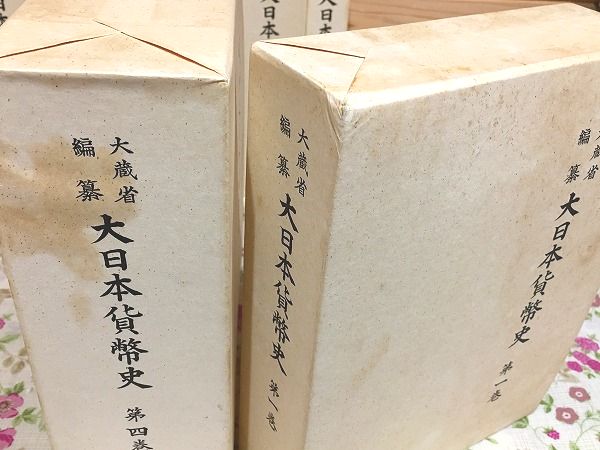 大蔵省
編纂
大日本貨幣史
第四巻
大蔵省
編纂
大日本貨幣史
大蔵省
編纂
大日本貨幣史
第一巻
大日本
大日本